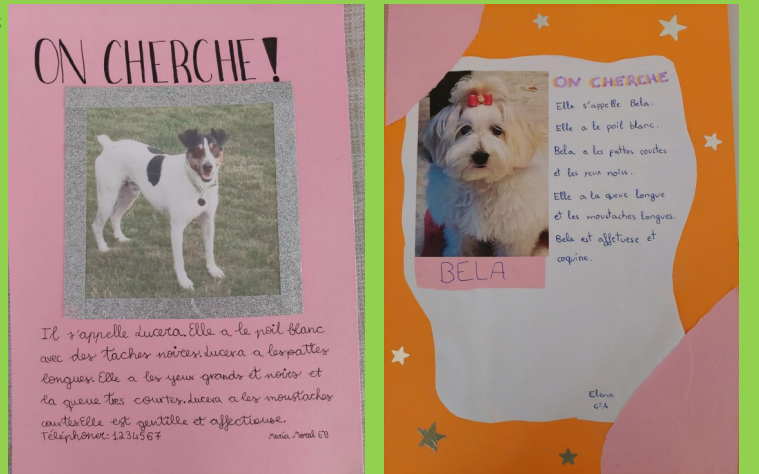 ON CHERCHE!
Il s'appelle Lucera. Elle a le poil blanc
avec des taches noires. Lucera a les pattes
longues. Elle a les yeux grands et noirs et
la queue très courtes. Lucera a les moustaches
courtes Elle est gentille et affectiouse.
Téléphoner: 1234567
María Moral 6ºB
ON CHERCHE
Elle s'appelle Bela.
Elle a le poil blanc.
Bela a les pattes courtes
et les yeux noirs.
Elle a la queue longue
et les moustaches longues.
Bela est affetuese et
coquine.
BELA
Elena
6ºA